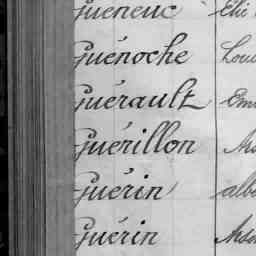 Guéneuc
Guénoche Loui
Guérault Em
Guérillon
Guérin albe
Guérin Arsè